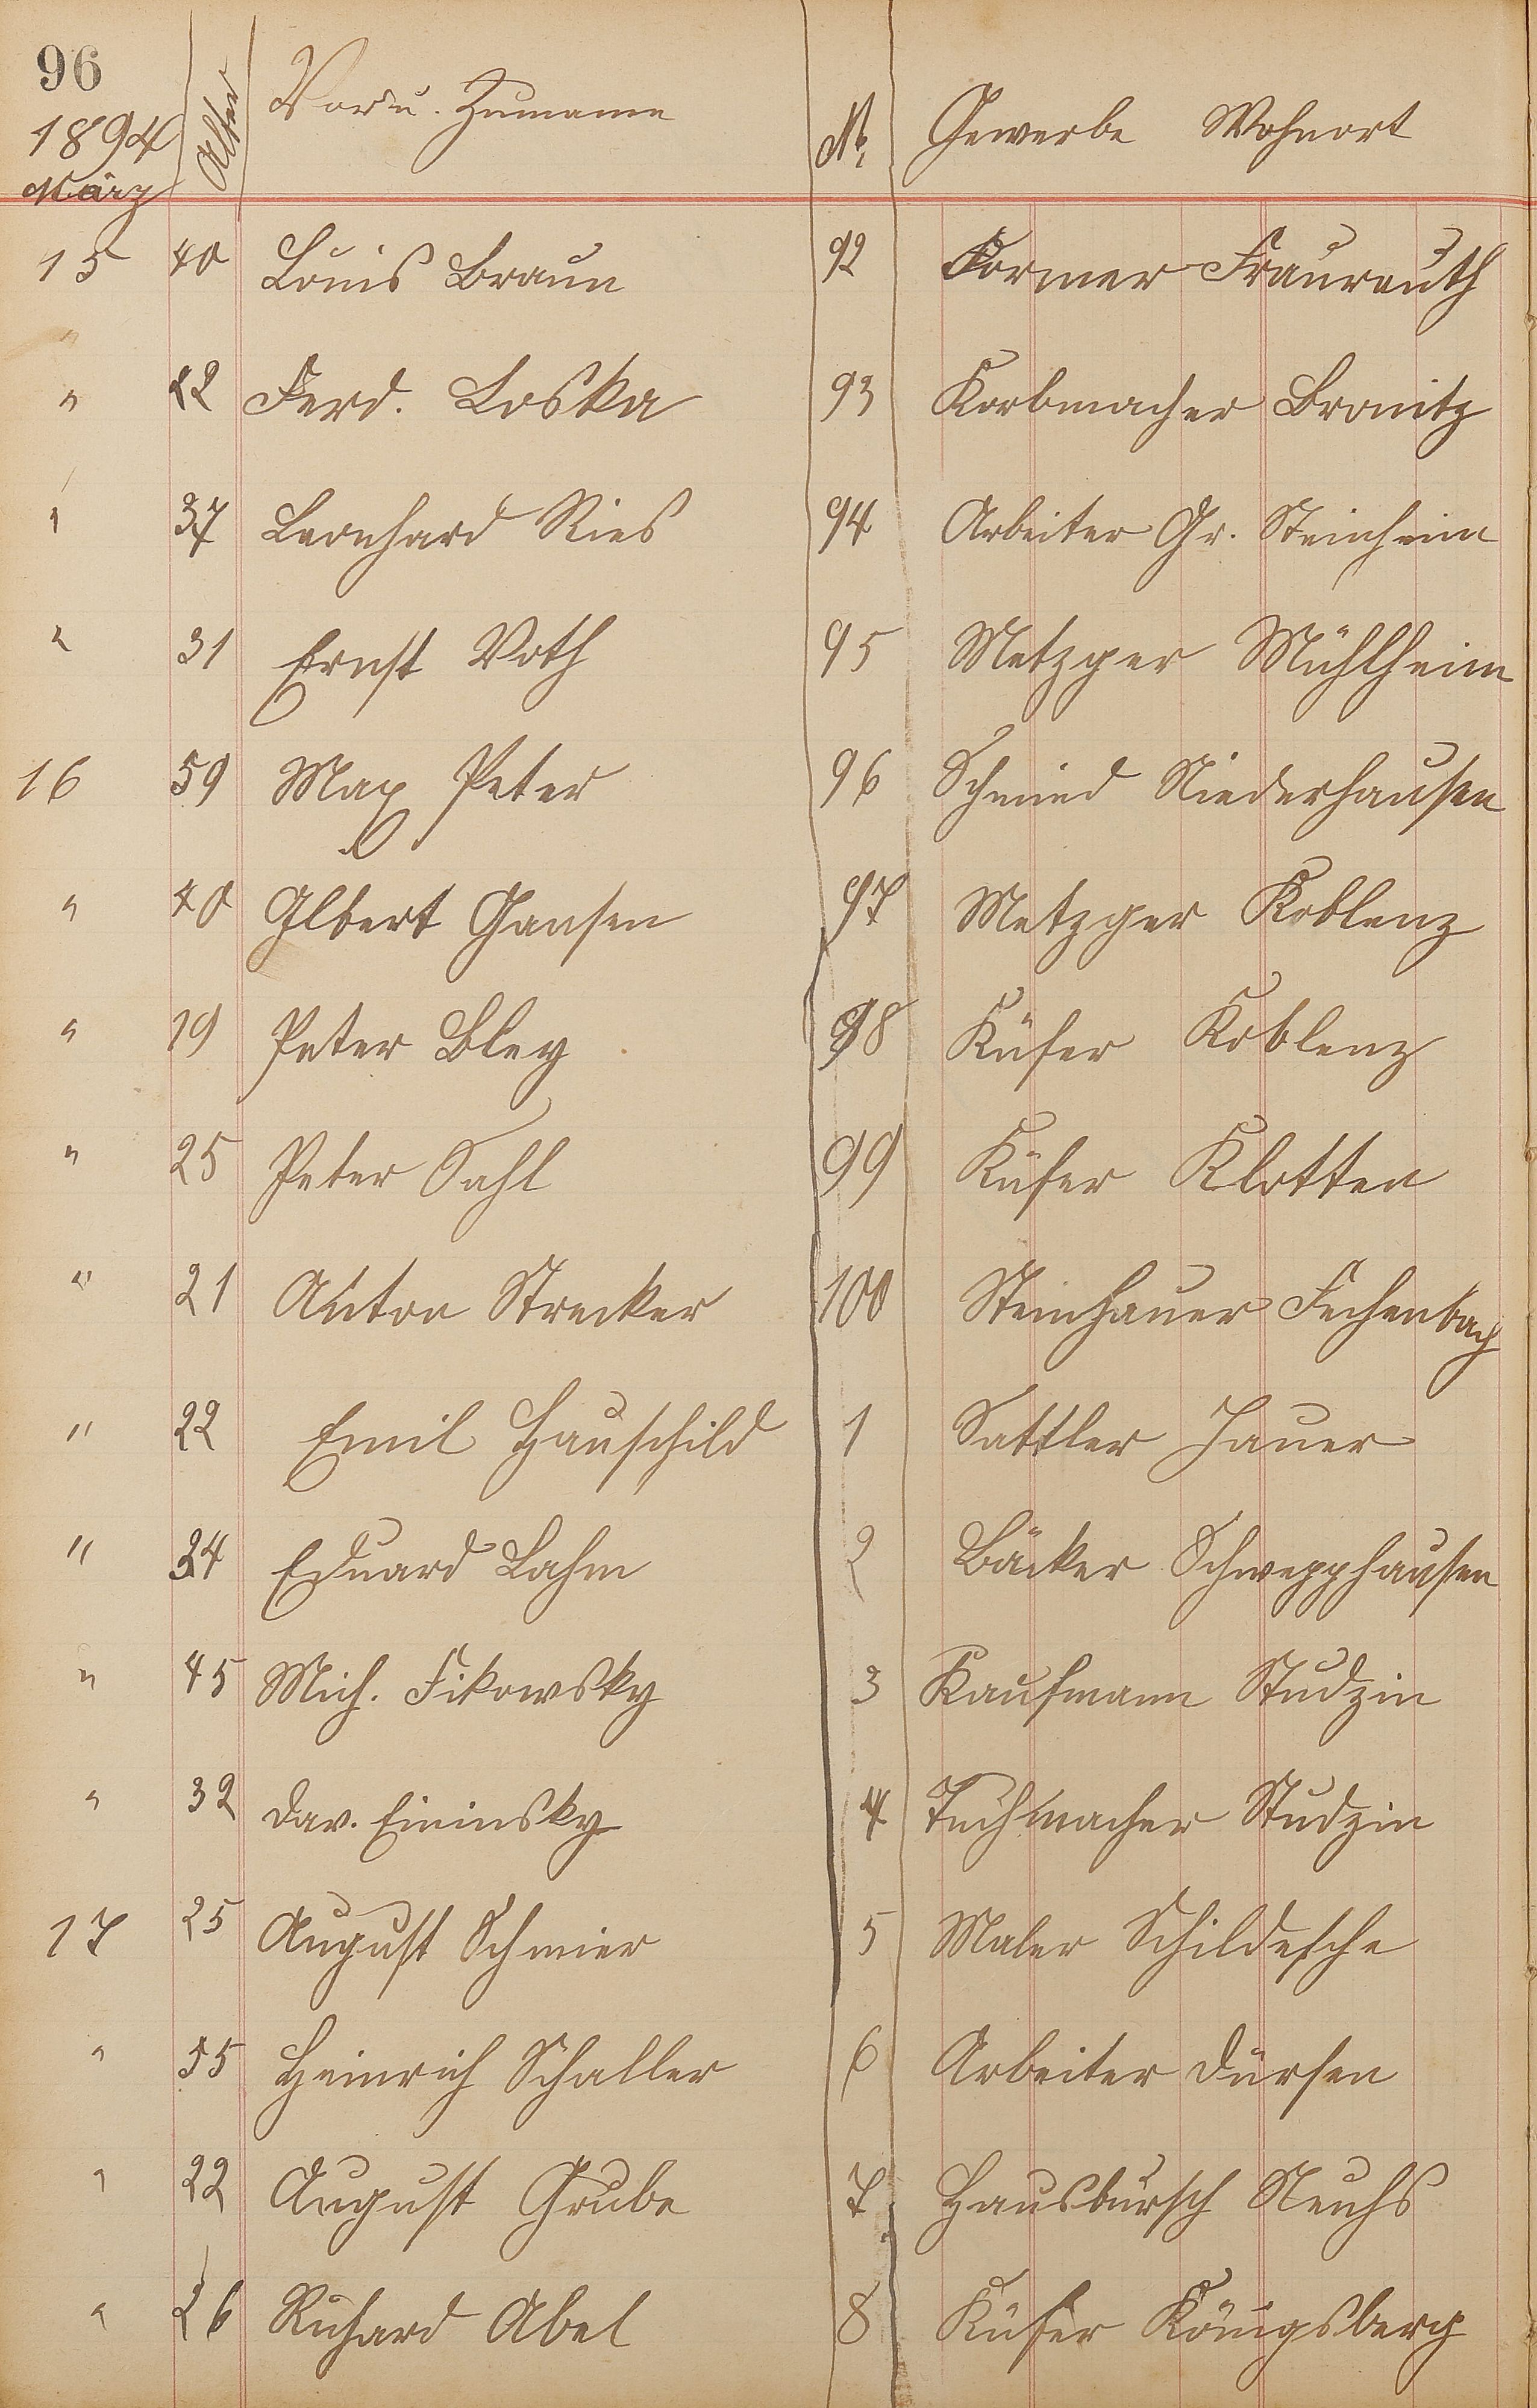 96
1894 Alter Vor u. Zuname No. Gewerbe Wohnort
März
15 40 Louis Braun 92 Former Fraureuth
" 22 Ferd. Loska 93 Korbmacher Bronitz
" 37 Leonhard Ries 94 Arbeiter Gr. Steinheim
" 31 Ernst Voth 95 Metzger Mühlheim
16 59 Max Peter 96 Schmied Niederhausen
" 40 Albert Gansen 97 Metzger Koblenz
" 19 Peter Bley 98 Küfer Koblenz
" 25 Peter Sahl 99 Küfer Klotten
" 21 Anton Strecker 100 Steinhauer Fechenbach
" 22 Emil Hauschild 1 Sattler Jauer
" 34 Eduard Lahm 2 Bäcker Schwepphausen
" 45 Mich. Fikowsky 3 Kaufmann Studzin
" 32 Dav. Eininsky 4 Tuchmacher Studzin
17 25 August Schmier 5 Maler Schildesche
" 55 Heinrich Schaller 6 Arbeiter Dürsen
" 22 August Grube 7 Hausbursch Neuhs
" 26 Richard Abel 8 Küfer Königsberg